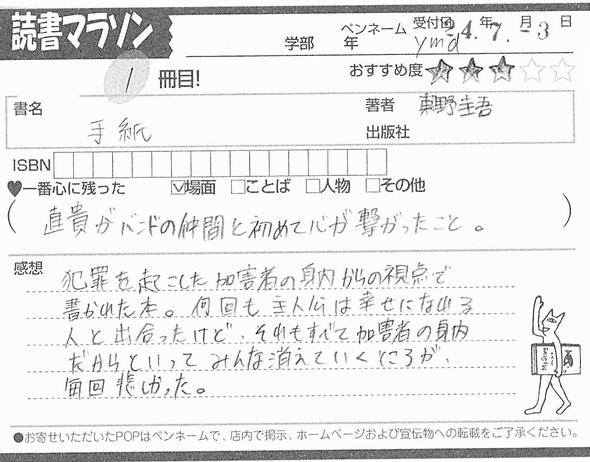 読書マラソン
学部 年 ペンネーム ymd 受付日 24年7月-3日
1 冊目! おすすめ度 ★★★☆☆
書名 手紙
著者 東野圭吾
出版社
ISBN
♥一番心に残った ☑場面 □ことば □人物 □その他
(直貴がバンドの仲間と初めて心が繋がったこと。)
感想
犯罪を起こした加害者の身内からの視点で
書かれた本。何回も主人公は幸せになれる
人と出合ったけど、それもすべて加害者の身内
だからといってみんな消えていくところが、
毎回悲しかった。
●お寄せいただいたPOPはペンネームで、店内で掲示、ホームページおよび宣伝物への転載をご了承ください。